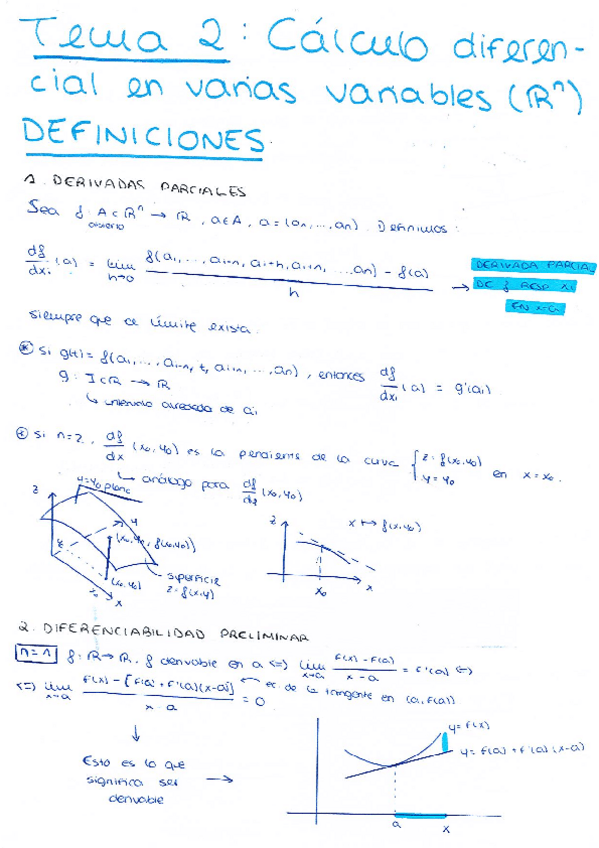 Tema 2: Cálculo diferen-
cial en varias variables (ℝⁿ)
DEFINICIONES
1. DERIVADAS PARCIALES
Sea f: A⊂ℝⁿ → ℝ, a∈A, a=(a₁,...,aₙ). Definimos:
abierto
df/dxᵢ (a) = lim h→0 f(a₁,..., aᵢ₋₁, aᵢ+h, aᵢ₊₁, ... aₙ) - f(a) / h → DERIVADA PARCIAL
DE f RESP xᵢ
EN x=a
siempre que el límite exista.
* Si g(t)= f(a₁,..., aᵢ₋₁, t, aᵢ₊₁,..., aₙ), entonces df/dxᵢ (a) = g'(aᵢ)
g: I⊂ℝ → ℝ
↳ intervalo alrededor de aᵢ
* Si n=2, df/dx (x₀,y₀) es la pendiente de la curva { z=f(x,y₀) y=y₀ en x=x₀.
↳ análogo para df/dy (x₀,y₀)
y=y₀ plano
z
y
(x₀,y₀,f(x₀,y₀))
(x₀,y₀)
x₀
x
superficie
z=f(x,y)
z
x ↦ f(x,y₀)
x₀
x
2. DIFERENCIABILIDAD PRELIMINAR
n=1 f: ℝ→ℝ. f derivable en a <=> lim x→a f(x)-f(a) / x-a = f'(a) <=>
<=> lim x→a f(x) - [f(a)+f'(a)(x-a)] / x-a = 0 ec. de la tangente en (a, f(a))
↓
Esto es lo que
significa ser
derivable
→
y=f(x)
y=f(a)+f'(a)(x-a)
a
x